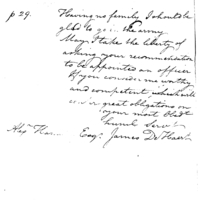 p 29. Having no family I should be
glad to go in the army
May I take the liberty of
asking your recommendation
to be appointed an officer
If you consider me worthy
and competent which will
great obligations on
your most obedt
humb servt
Esqr. James De Hart